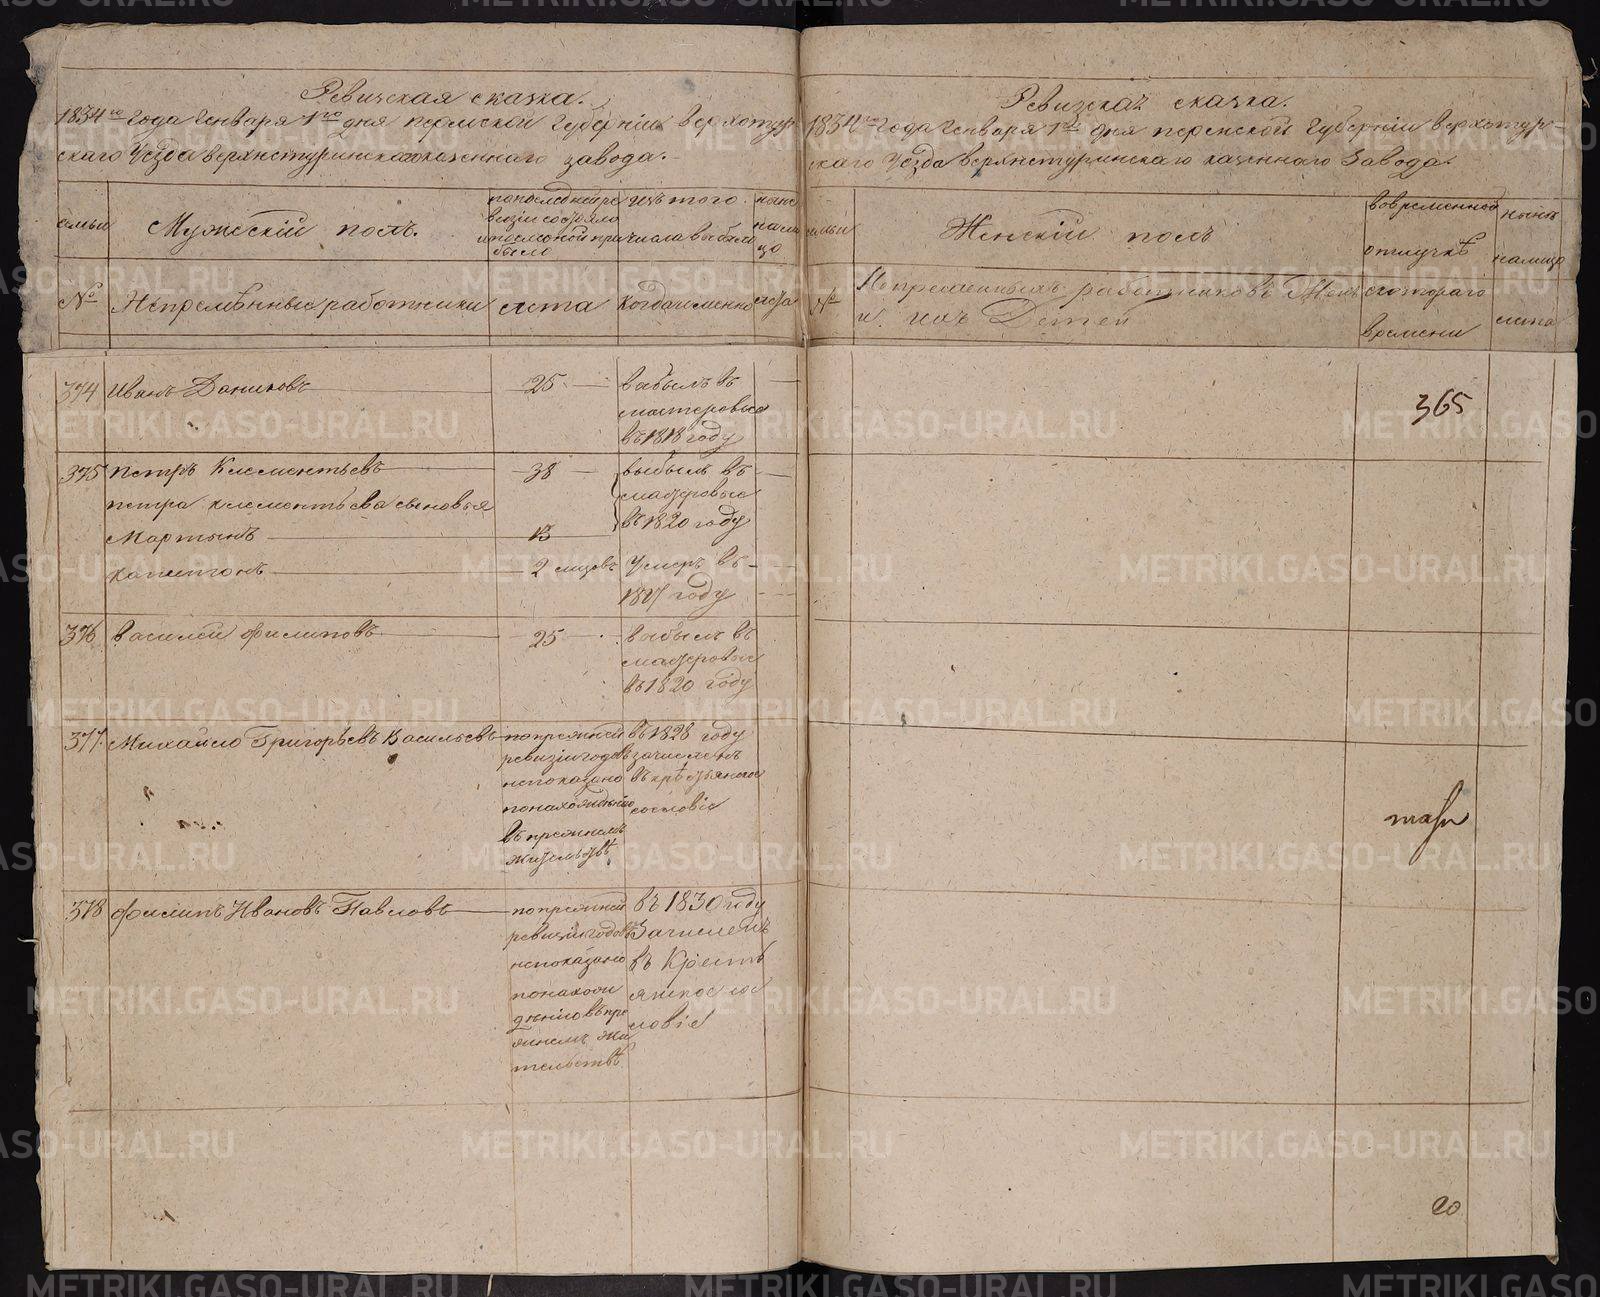 Ревизская сказка.
1834го года Генваря 1го дня пермской Губернiи верхотур
скаго Уезда верхнетуринскаго казеннаго завода.
семьи
Мужескiй полъ.
попоследней ре
визiи состояло
и после оной при
было
изъ того
числа выбыло
ныне
нали
цо
№
Непремѣнные работники
лета
когда именно
лета
374 Иванъ Даниловъ 25
выбылъ въ
мастеровые
въ 1818 году
375 петръ Клементьевъ 38
выбылъ въ
петра клементьева сыновья
мастеровые
Мартынъ 13
въ 1820 году
капитонъ 2 месцовъ
Умеръ въ
1817 году
376 василей филиповъ 25
выбылъ въ
мастеровые
въ 1820 году
377 Михайло Григорьевъ Васильевъ
попрежней
ревизiи годовъ
непоказано
понахожденiю
въ прежнемъ
жительствѣ
въ 1828 году
зачисленъ
въ крестьянское
сословiе
378 филипъ Ивановъ Павловъ
попрежней
ревизiи годовъ
непоказано
понахож
денiю въ пре
жнемъ жи
тельствѣ
въ 1830 году
Зачисленъ
въ Кресть
янское сос
ловiе
Ревизская сказка.
1834го года Генваря 1го дня пермской Губернiи верхотур
скаго Уезда верхнетуринскаго казеннаго Завода.
семьи
Женскiй полъ
вовременной
отлучкѣ
ныне
налицо
№
Непременныхъ работниковъ Жены
и ихъ Детей
скотораго
времени
лета
365
20
METRIKI.GASO-URAL.RU